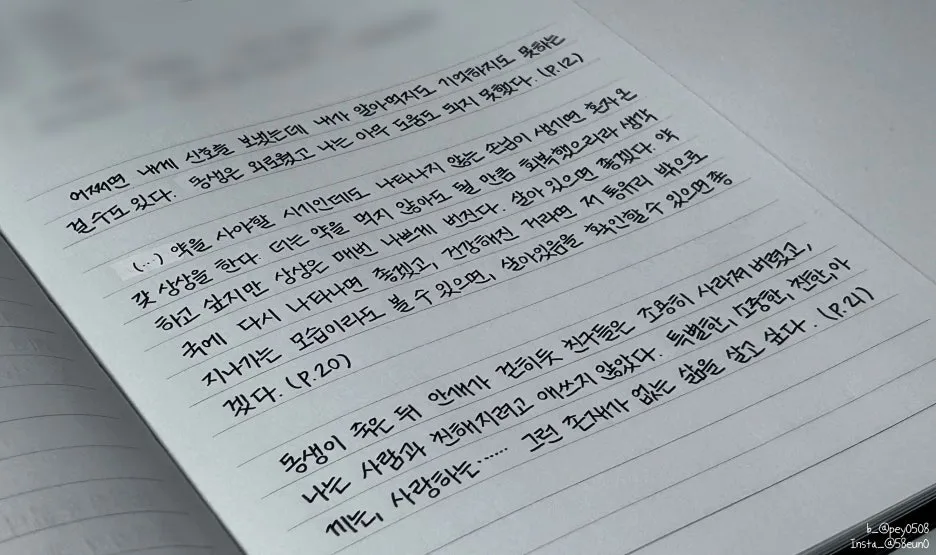 어쩌면 내게 신호를 보냈는데 내가 알아먹지도 기억하지도 못하는
걸 수도 있다. 동생은 외로웠고 나는 아무 도움도 되지 못했다. (P.12)
(..) 약을 사야할 시기인데도 나타나지 않는 손님이 생기면 혼자 온
갖 상상을 한다. 더는 약을 먹지 않아도 될 만큼 회복했으리라 생각
하고 싶지만 상상은 매번 나쁘게 번진다. 살아 있으면 좋겠다. 약
국에 다시 나타나면 좋겠고, 건강해진 거라면 저 통유리 밖으로
지나가는 모습이라도 볼 수 있으면, 살아있음을 확인할 수 있으면 좋
겠다. (P.20)
동생이 죽은 뒤 안개가 걷히듯 친구들은 조용히 사라져 버렸고,
나는 사람과 친해지려고 애쓰지 않았다. 특별한, 소중한, 친한, 아
끼는, 사랑하는...... 그런 존재가 없는 삶을 살고 싶다. (P.21)
b_@pey0508
Insta_@58eun0